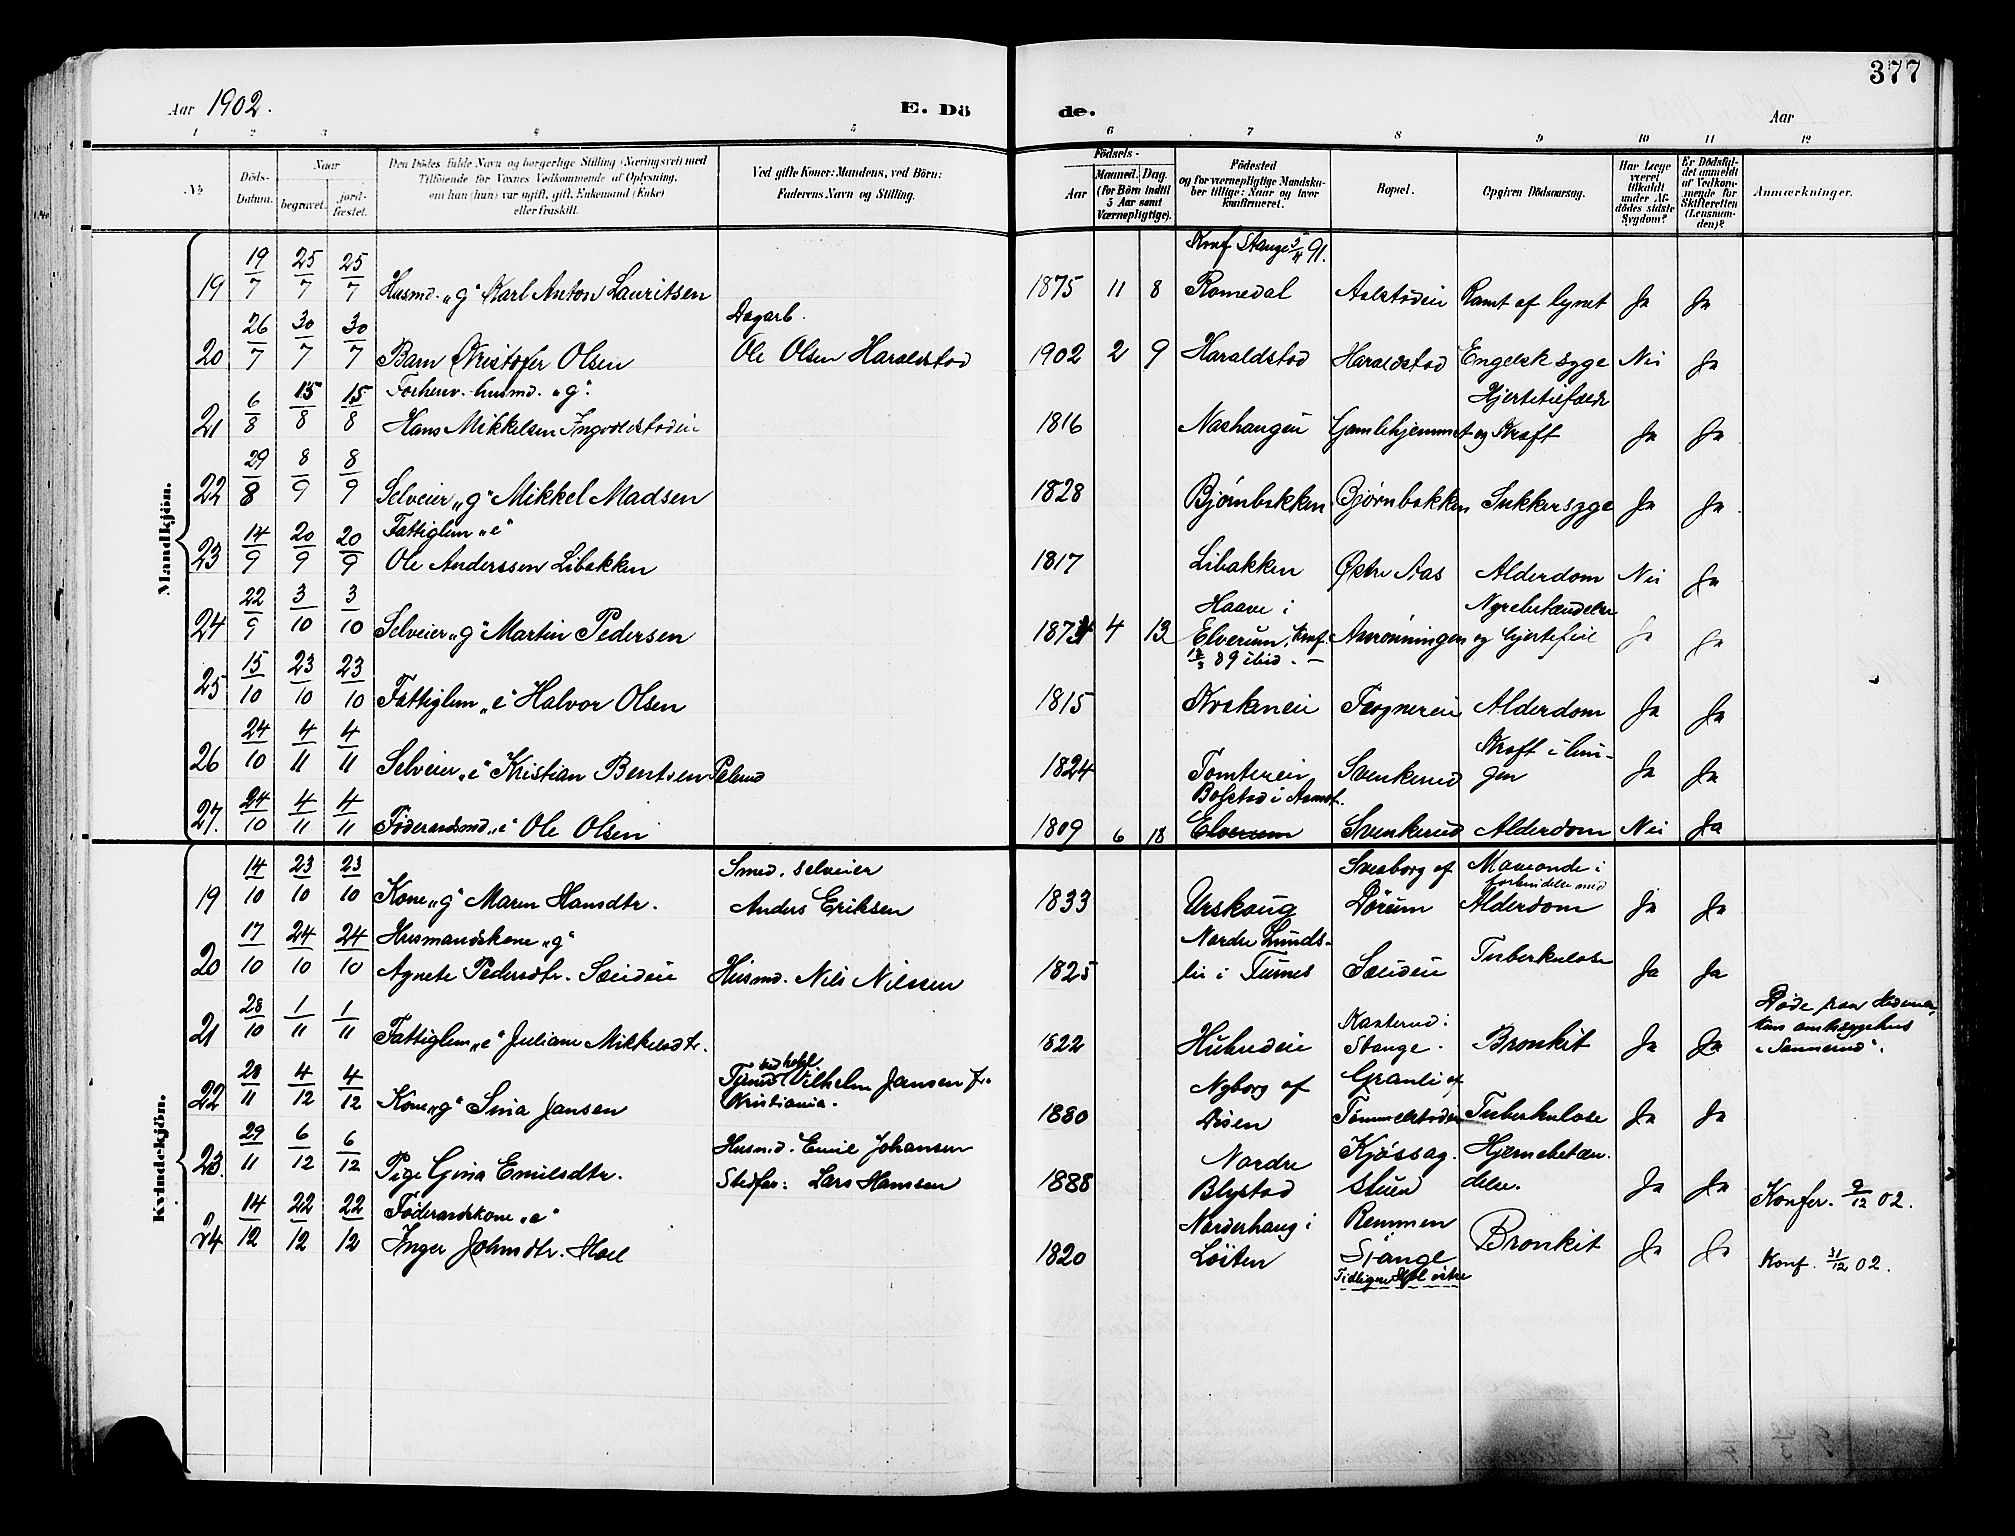 377
Aar 1902.
E. Dö de.
Aar
1 2 3 4 5 6 7 8 9 10 11 12
No
Döds-Datum.
Naar
begravet.
jord-fæstet.
Den Dödes fulde Navn og borgerlige Stilling (Næringsvei) med
Tilföiende för Voxnes Vedkommende af Oplysning,
om han (hun) var ugift, gift, Enkemand (Enke)
eller fraskilt.
Ved gifte Koner: Mandens, ved Börn:
Faderens Navn og Stilling.
Födsels-
Aar
Maaned. Dag.
(for Börn indtil 5 Aar samt Værnepligtige).
Födested
og for værnepligtige Mandska-
ber tillige: Naar og hvor
Konfirmeret.
Bopæl.
Opgiven Dödsaarsag.
Har Læge været tilkaldt under Afdödes sidste Sygdom?
Er Dödsfaldet anmeldt af Vedkommende for Skifteretten (Lensmanden)?
Anmærkninger.
Mandkjön.
19 19/7 25/7 25/7 Husmd. „g“ Karl Anton Lauritsen 1875 11 8 Konf Stange 5/4 91. Romedal Aalstadeie Ramt af lynet Ja Ja
20 26/7 30/7 30/7 Barn Kristofer Olsen Dagarb. Ole Olsen Haraldstad 1902 2 9 Haraldstad Haraldstad Engelsk syge Nei Ja
21 6/8 15/8 15/8 Forhenv. husmd. „g“. Hans Mikkelsen Ingvoldstadeie 1816 Nashaugen Gamlehjemmet Hjertetilfælde og Kraft Ja Ja
22 29/8 8/9 8/9 Selveier „g“ Mikkel Madsen 1828 Bjørnbakken Bjørnbakken Sukkersyge Ja Ja
23 14/9 20/9 20/9 Fattiglem „e“ Ole Anderssen Libakken 1817 Libakken Østre Aas Alderdom Nei Ja
24 22/9 3/10 3/10 Selveier „g“ Martin Pedersen 4 13 Haave i Elverum, Konf. 89 ibid. Nyrebetændelse og hjertefeil Ja Ja
25 15/10 23/10 23/10 Fattiglem „e“ Halvor Olsen 1815 Alderdom Ja Ja
26 24/10 4/11 4/11 Selveier „e“ Kristian Bentsen 1824 Tomtereie Svenkerud Kraft i lungen Ja Ja
27. 24/10 4/11 4/11 Föderaadsmd. „e“ Ole Olsen 1809 6 18 Bolstad i Aamot. Elverum Svenkerud Alderdom Nei Ja
Kvindekjön.
19 14/10 23/10 23/10 Kone „g“ Maren Hansdtr. Smed, selveier Anders Eriksen 1833 Urskoug Sveaborg af Dörum Maveonde i forbindelse med Alderdom Ja Ja
20 17/10 24/10 24/10 Husmandskone „g“ Agnete Pedersdtr. Sæideie Husmd. Nils Nilssen 1825 Nordre Lundslie i Furnes Sæideie Tuberkulose Ja Ja
21 28/10 1/11 1/11 Fattiglem „e“ Juliane Mikkelsdtr. 1822 Kasterud i Stange. Bronkit Ja Ja Döde paa Hedemarkens amtssygehus „Sannerud“.
22 28/11 4/12 4/12 Kone „g“ Sina Jansen Vilhelm Jansen fr. Kristiania. 1880 Nyborg af Disen Granli af Tommelstadeie Tuberkulose Ja Ja
23. 29/11 6/12 6/12 Pige Gina Emilsdtr. Husmd. Emil Johansen Stedfar: Lars Hanssen 1888 Nordre Blystad Kjøssagstuen Hjernebetændelse. Ja Ja Konfer. 9/12 02.
24 14/12 22/12 22/12 Föderaadskone „e“ Inger Johnsdtr. Hoel 1820 Norderhaug i Løiten Remmen Stange Bronkit Ja Ja Konf. 31/12 02.